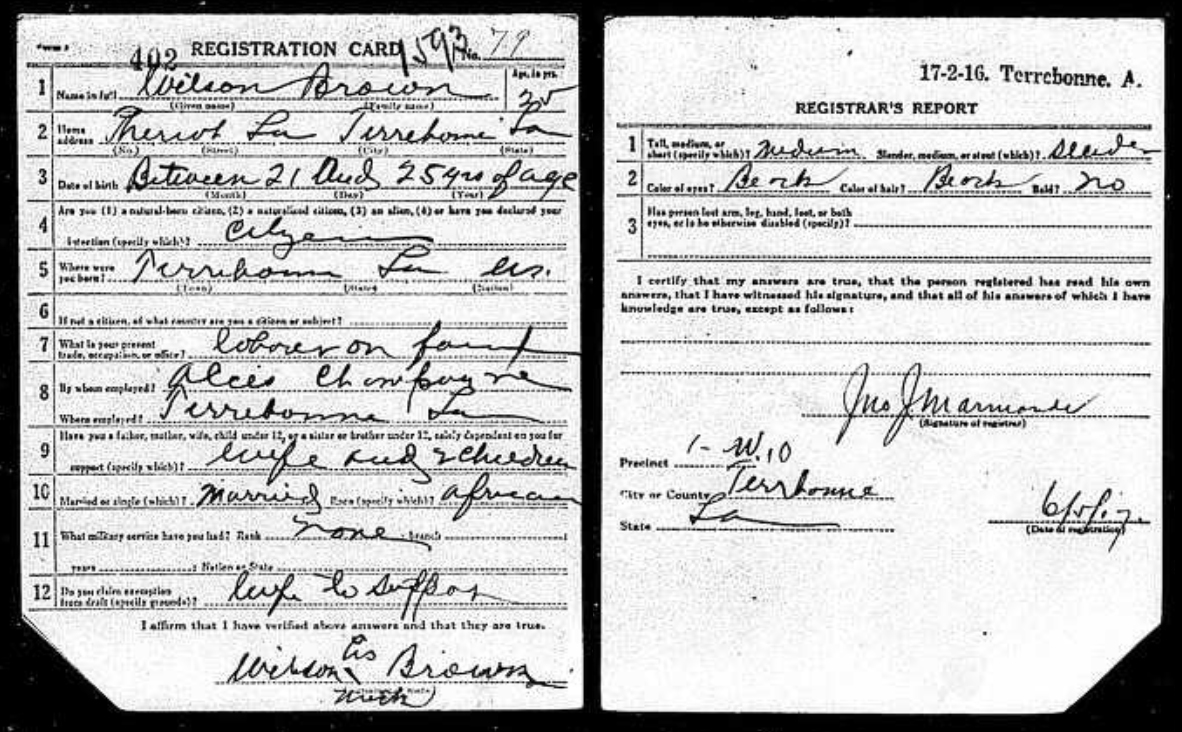 402 REGISTRATION CARD 1593 No. 79
1 Wilson Brown Age, in yrs.
Name in full
(Given name) (Family name)
2 Home address Theriot La Terrebonne La
(No.) (Street) (City) (State)
3 Date of birth Between 21 and 25 yrs of age
(Month) (Day) (Year)
4 Are you (1) a natural-born citizen, (2) a naturalized citizen, (3) an alien, (4) or have you declared your
intention (specify which)? Citizen
5 Where were you born? Terrebonne La us.
(Town) (State) (Nation)
6 If not a citizen, of what country are you a citizen or subject?
7 What is your present
trade, occupation, or office? laborer on farm
8 By whom employed?
Where employed? Terrebonne La
9 Have you a father, mother, wife, child under 12, or a sister or brother under 12, solely dependent on you for
support (specify which)? wife and 2 children
10 Married or single (which)? Married Race (specify which)? African
11 What military service have you had? Rank none branch
years ; Nation or State
12 Do you claim exemption
from draft (specify grounds)? wife to
I affirm that I have verified above answers and that they are true.
his
Wilson x Brown
17-2-16. Terrebonne, A.
REGISTRAR'S REPORT
1 Tall, medium, or
short (specify which)? Medium Slender, medium, or stout (which)? Slender
2 Color of eyes? Color of hair? Bald? no
3 Has person lost arm, leg, hand, foot, or both
eyes, or is he otherwise disabled (specify)?
I certify that my answers are true, that the person registered has read his own
answers, that I have witnessed his signature, and that all of his answers of which I have
knowledge are true, except as follows:
Jno J Marmande
(Signature of registrar)
Precinct 1-W.10
City or County Terrbonne
State La
6/5/17.
(Date of registration)